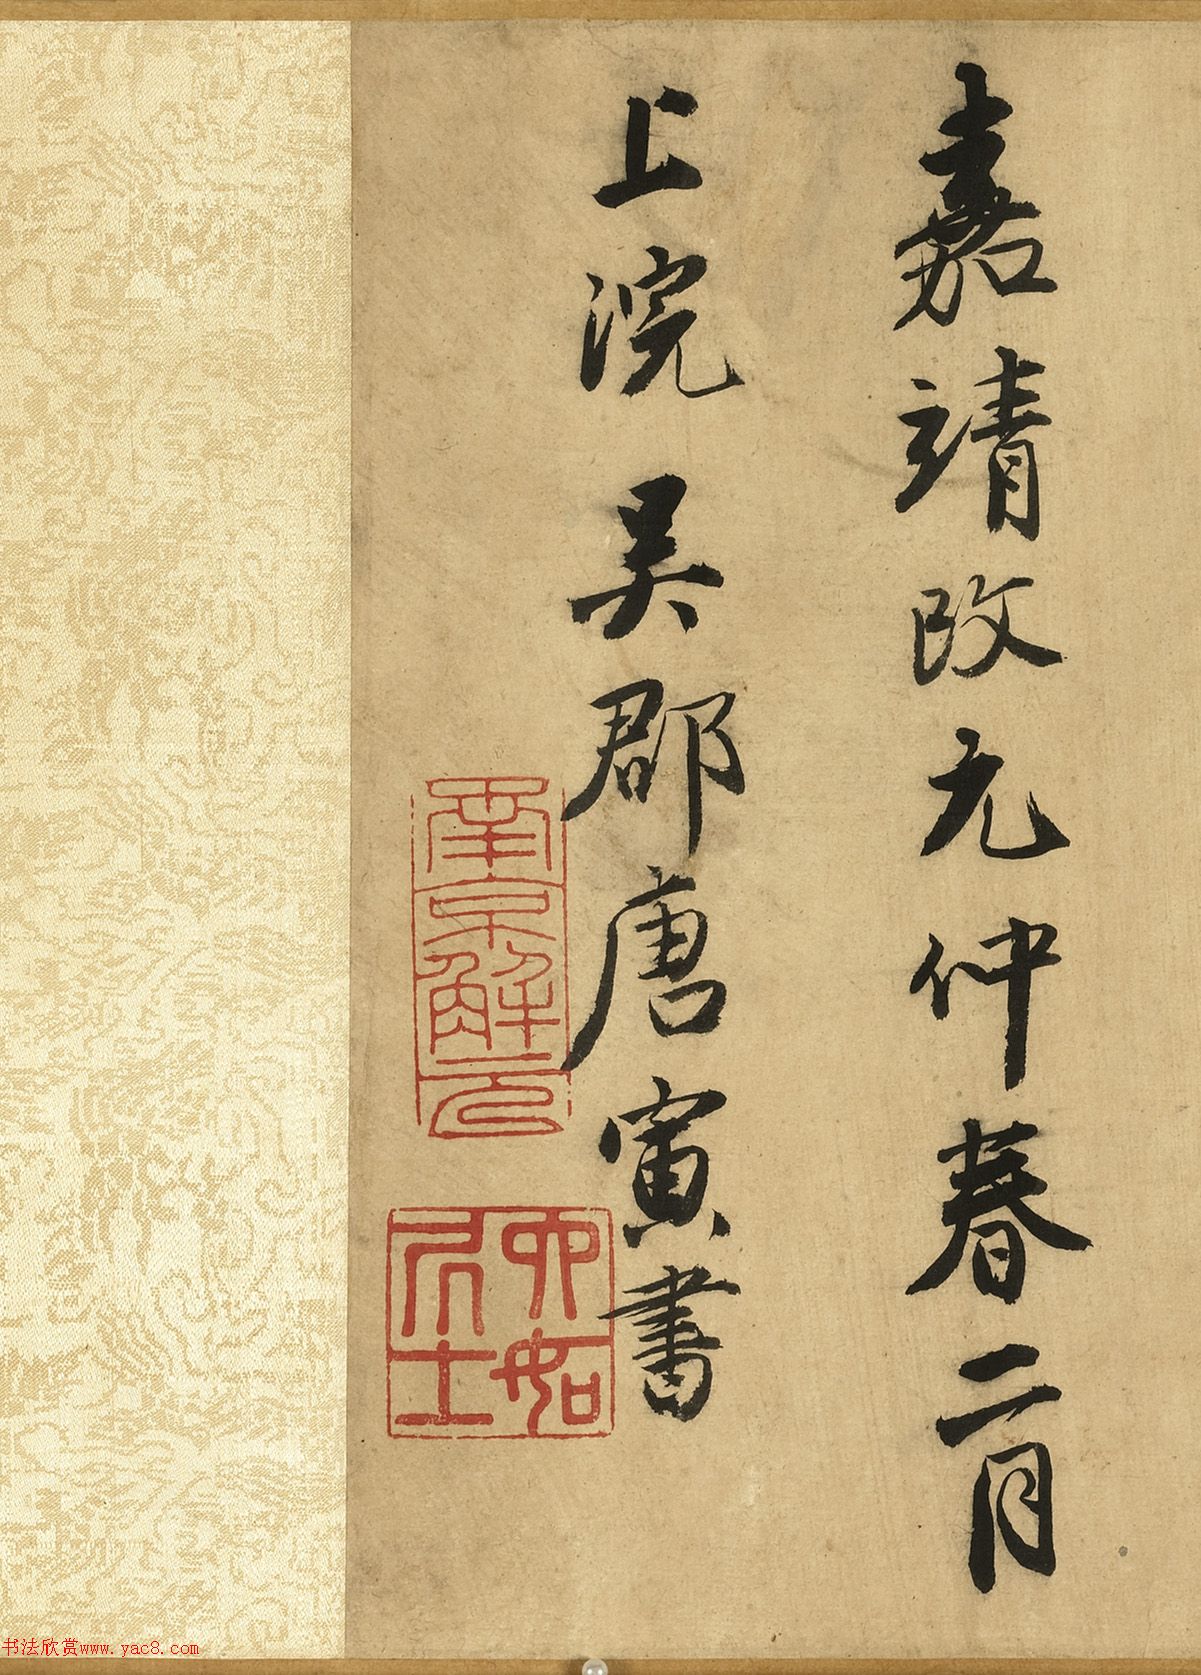 嘉靖改元仲春二月
上浣吴郡唐寅書
南京解元
六如居士
书法欣赏www.yac8.com